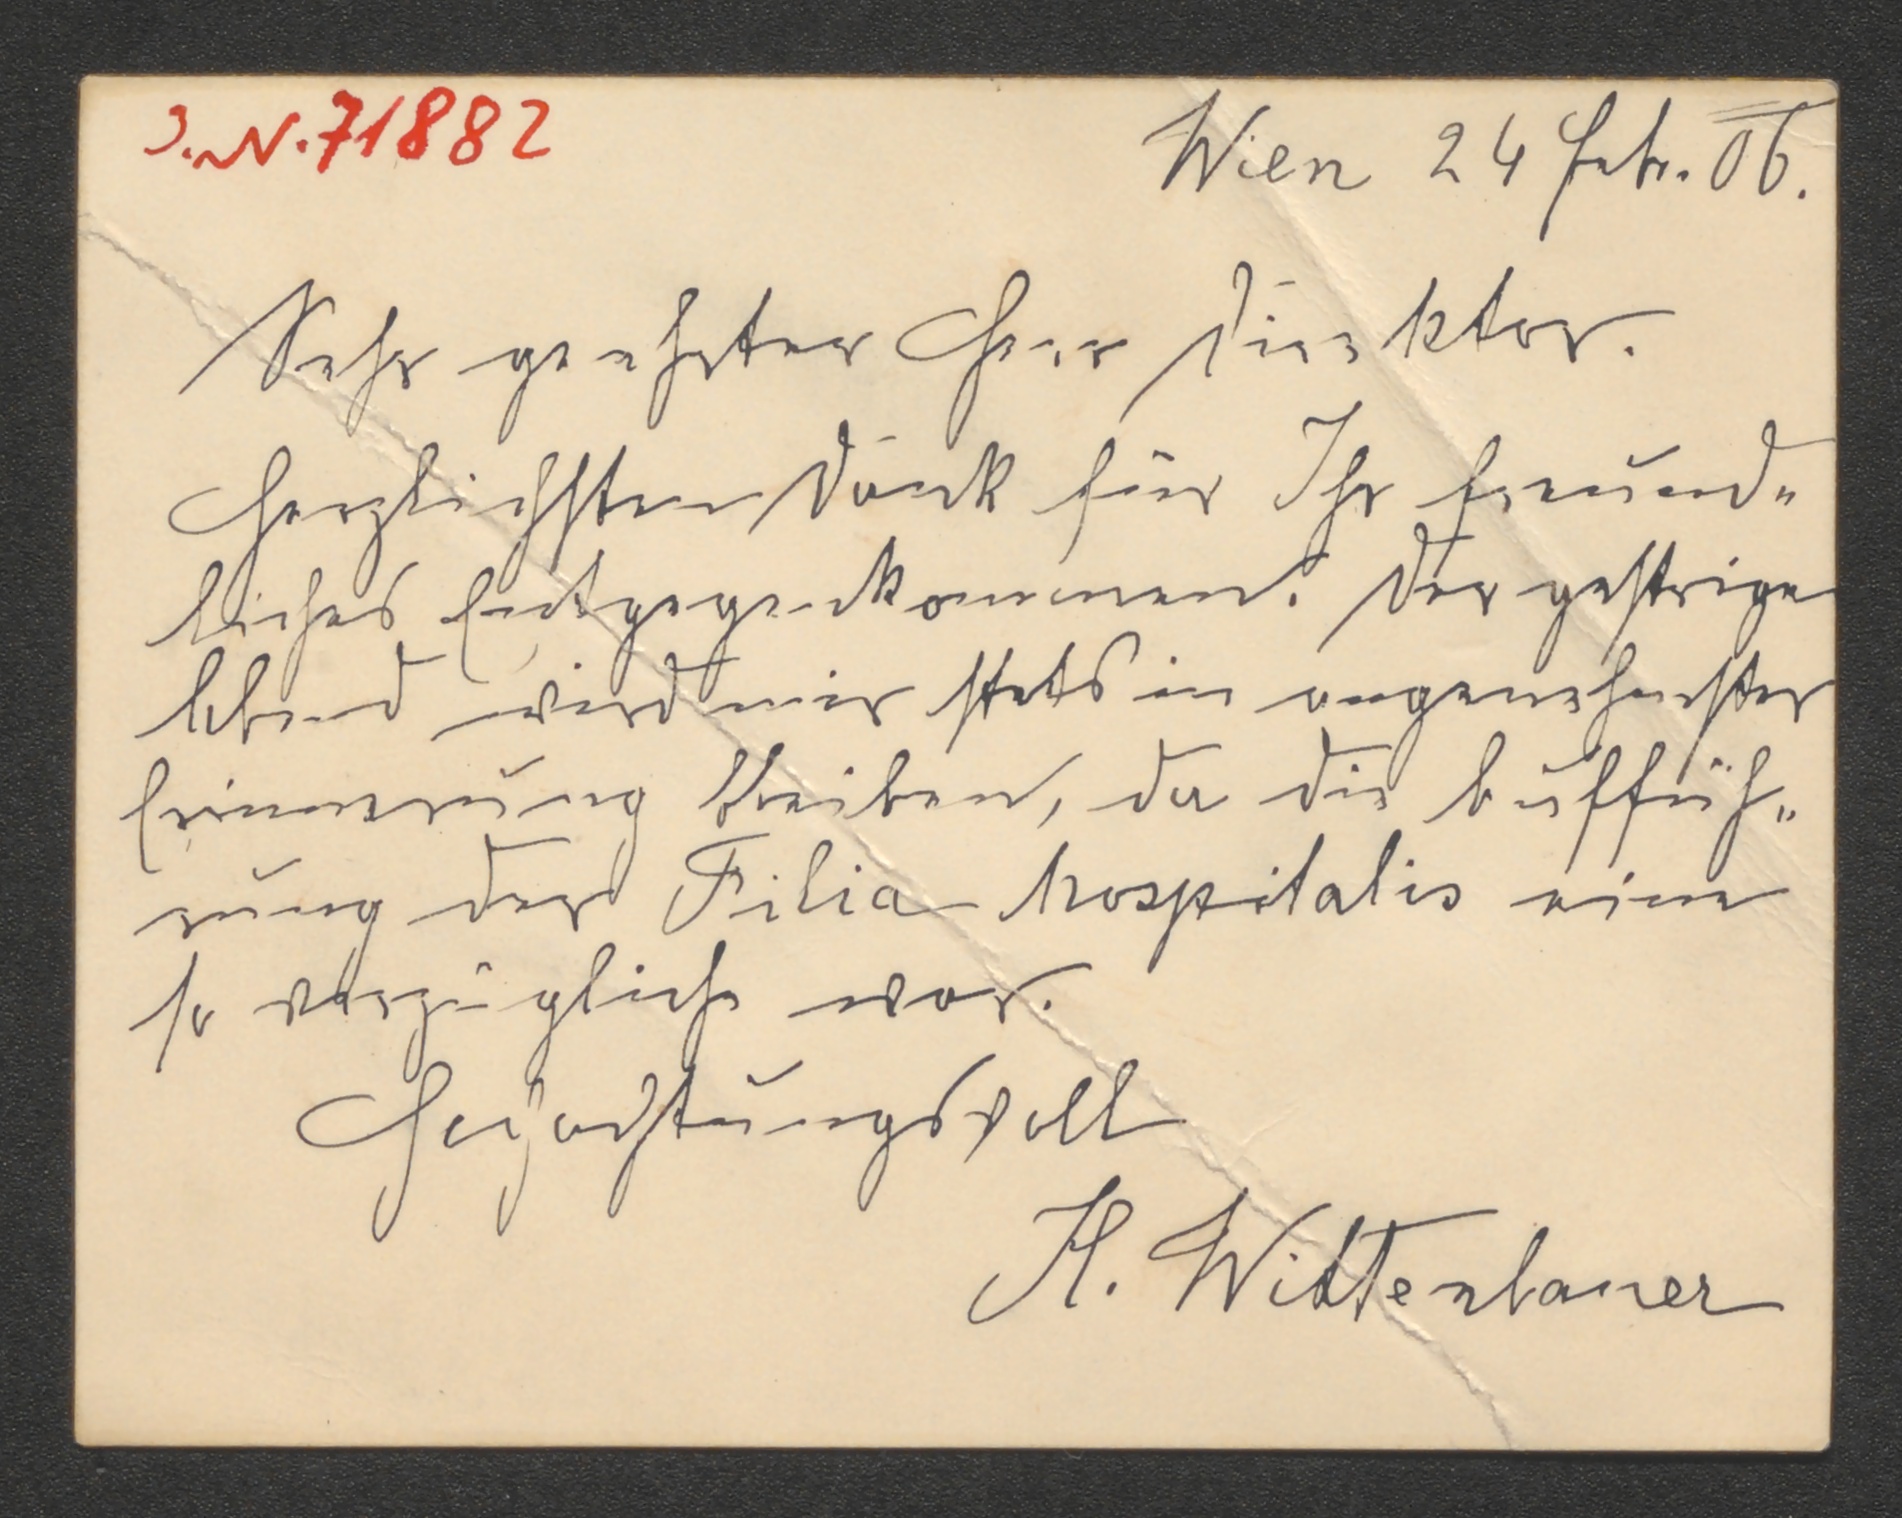 J.N. 71882
Wien 24 Febr. 06.
Sehr geehrter Herr Direktor.
Herzlichsten Dank für Ihr freund„
liches Entgegenkommen. Der gestrige
Abend wird mir stets in angenehmster
Erinnerung bleiben, da die Auffüh„
rung der Filia hospitalis eine
so vorzügliche war.
Hochachtungsvoll
Wittenbauer